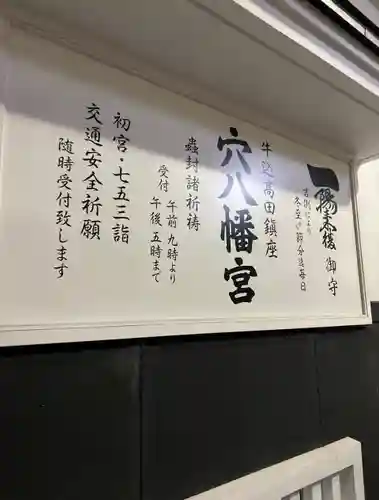 一陽来復 御守
古例により
冬至より節分迄毎日
牛込高田鎮座
穴八幡宮
蟲封諸祈祷
受付 午前九時より
午後五時まで
初宮・七五三詣
交通安全祈願
随時受付致します